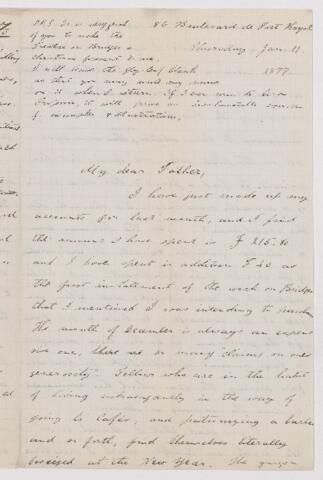 86 Boulevard de Port Royal
Thursday Jan. 11.
1877.
of you to make the
Treatise on Bridges a
Christmas present to me.
I will have the fly leaf blank
on it when I return. If I ever come to be a
Professor, it will prove an invaluable source
of examples & illustrations.
My dear Father,
I have just made up my
accounts for last month, and I find
the amount I have spent is F 215.80
and I have spent in addition F 20 as
the first installment of the work on Bridges
that I mentioned I was intending to purchase
The month of December is always an expen
sive one, there are so many claims on ones
generosity. Fellows who are in the habit
of living extravagantly in the way of
going to Cafés, and patronizing a barber
and so forth, find themselves literally
besieged at the New Year. The garçon